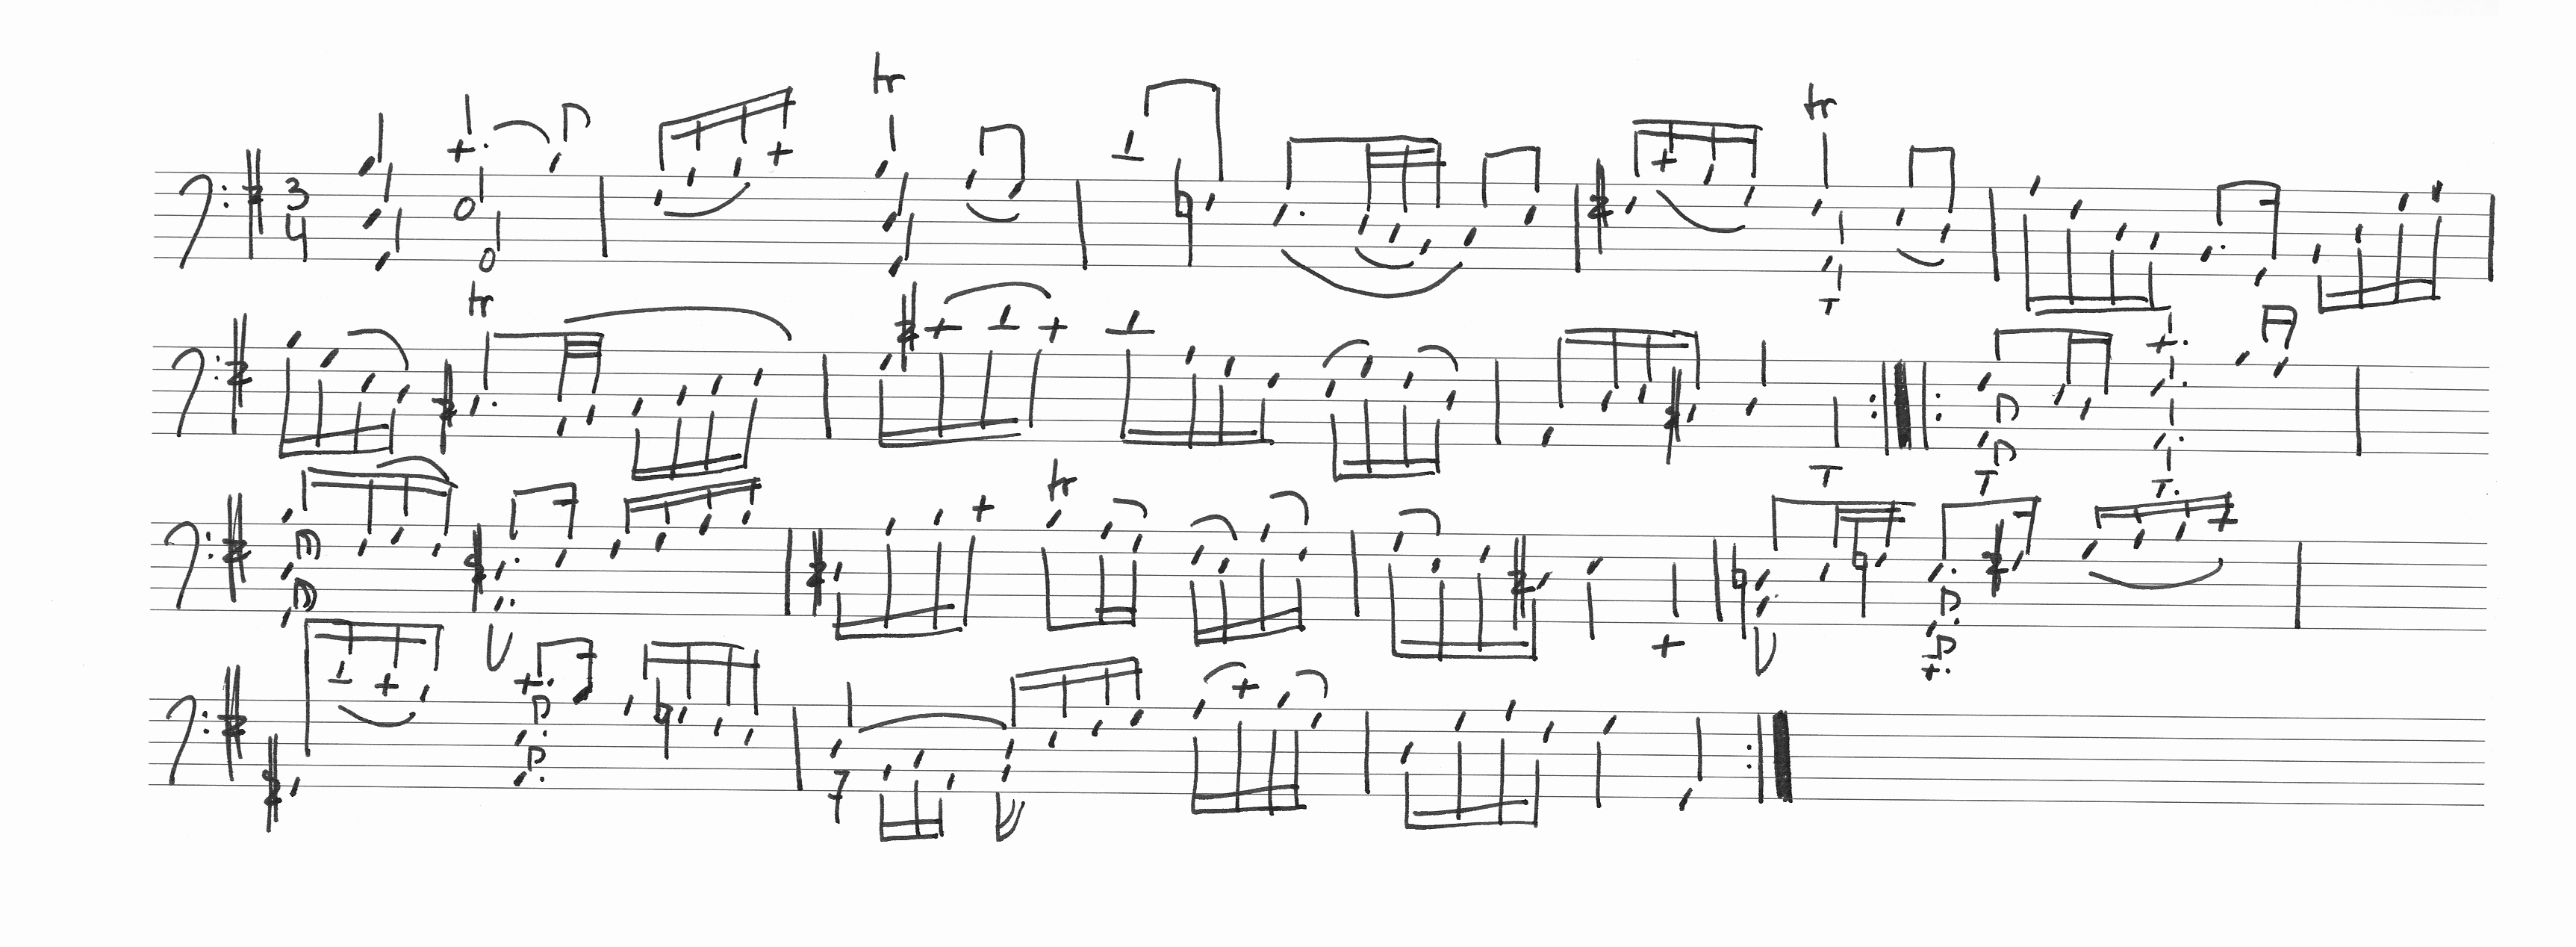 3
4
tr
tr
tr
tr